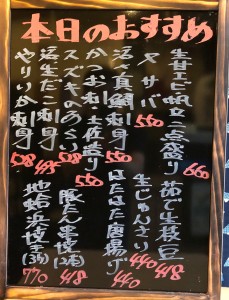 本日のおすすめ
生甘エビ帆立二点盛り 660
〆サバ 550
活〆真鯛刺身
かつお刺土佐造り 550
スズキのあらい 508
活生だこ刺身 495
やりいか刺身 508
茹で生枝豆 418
生じゅんさい 440
はたはた唐揚げ 440
豚たん串焼(2本) 418
地蛤浜焼(3ヶ) 770